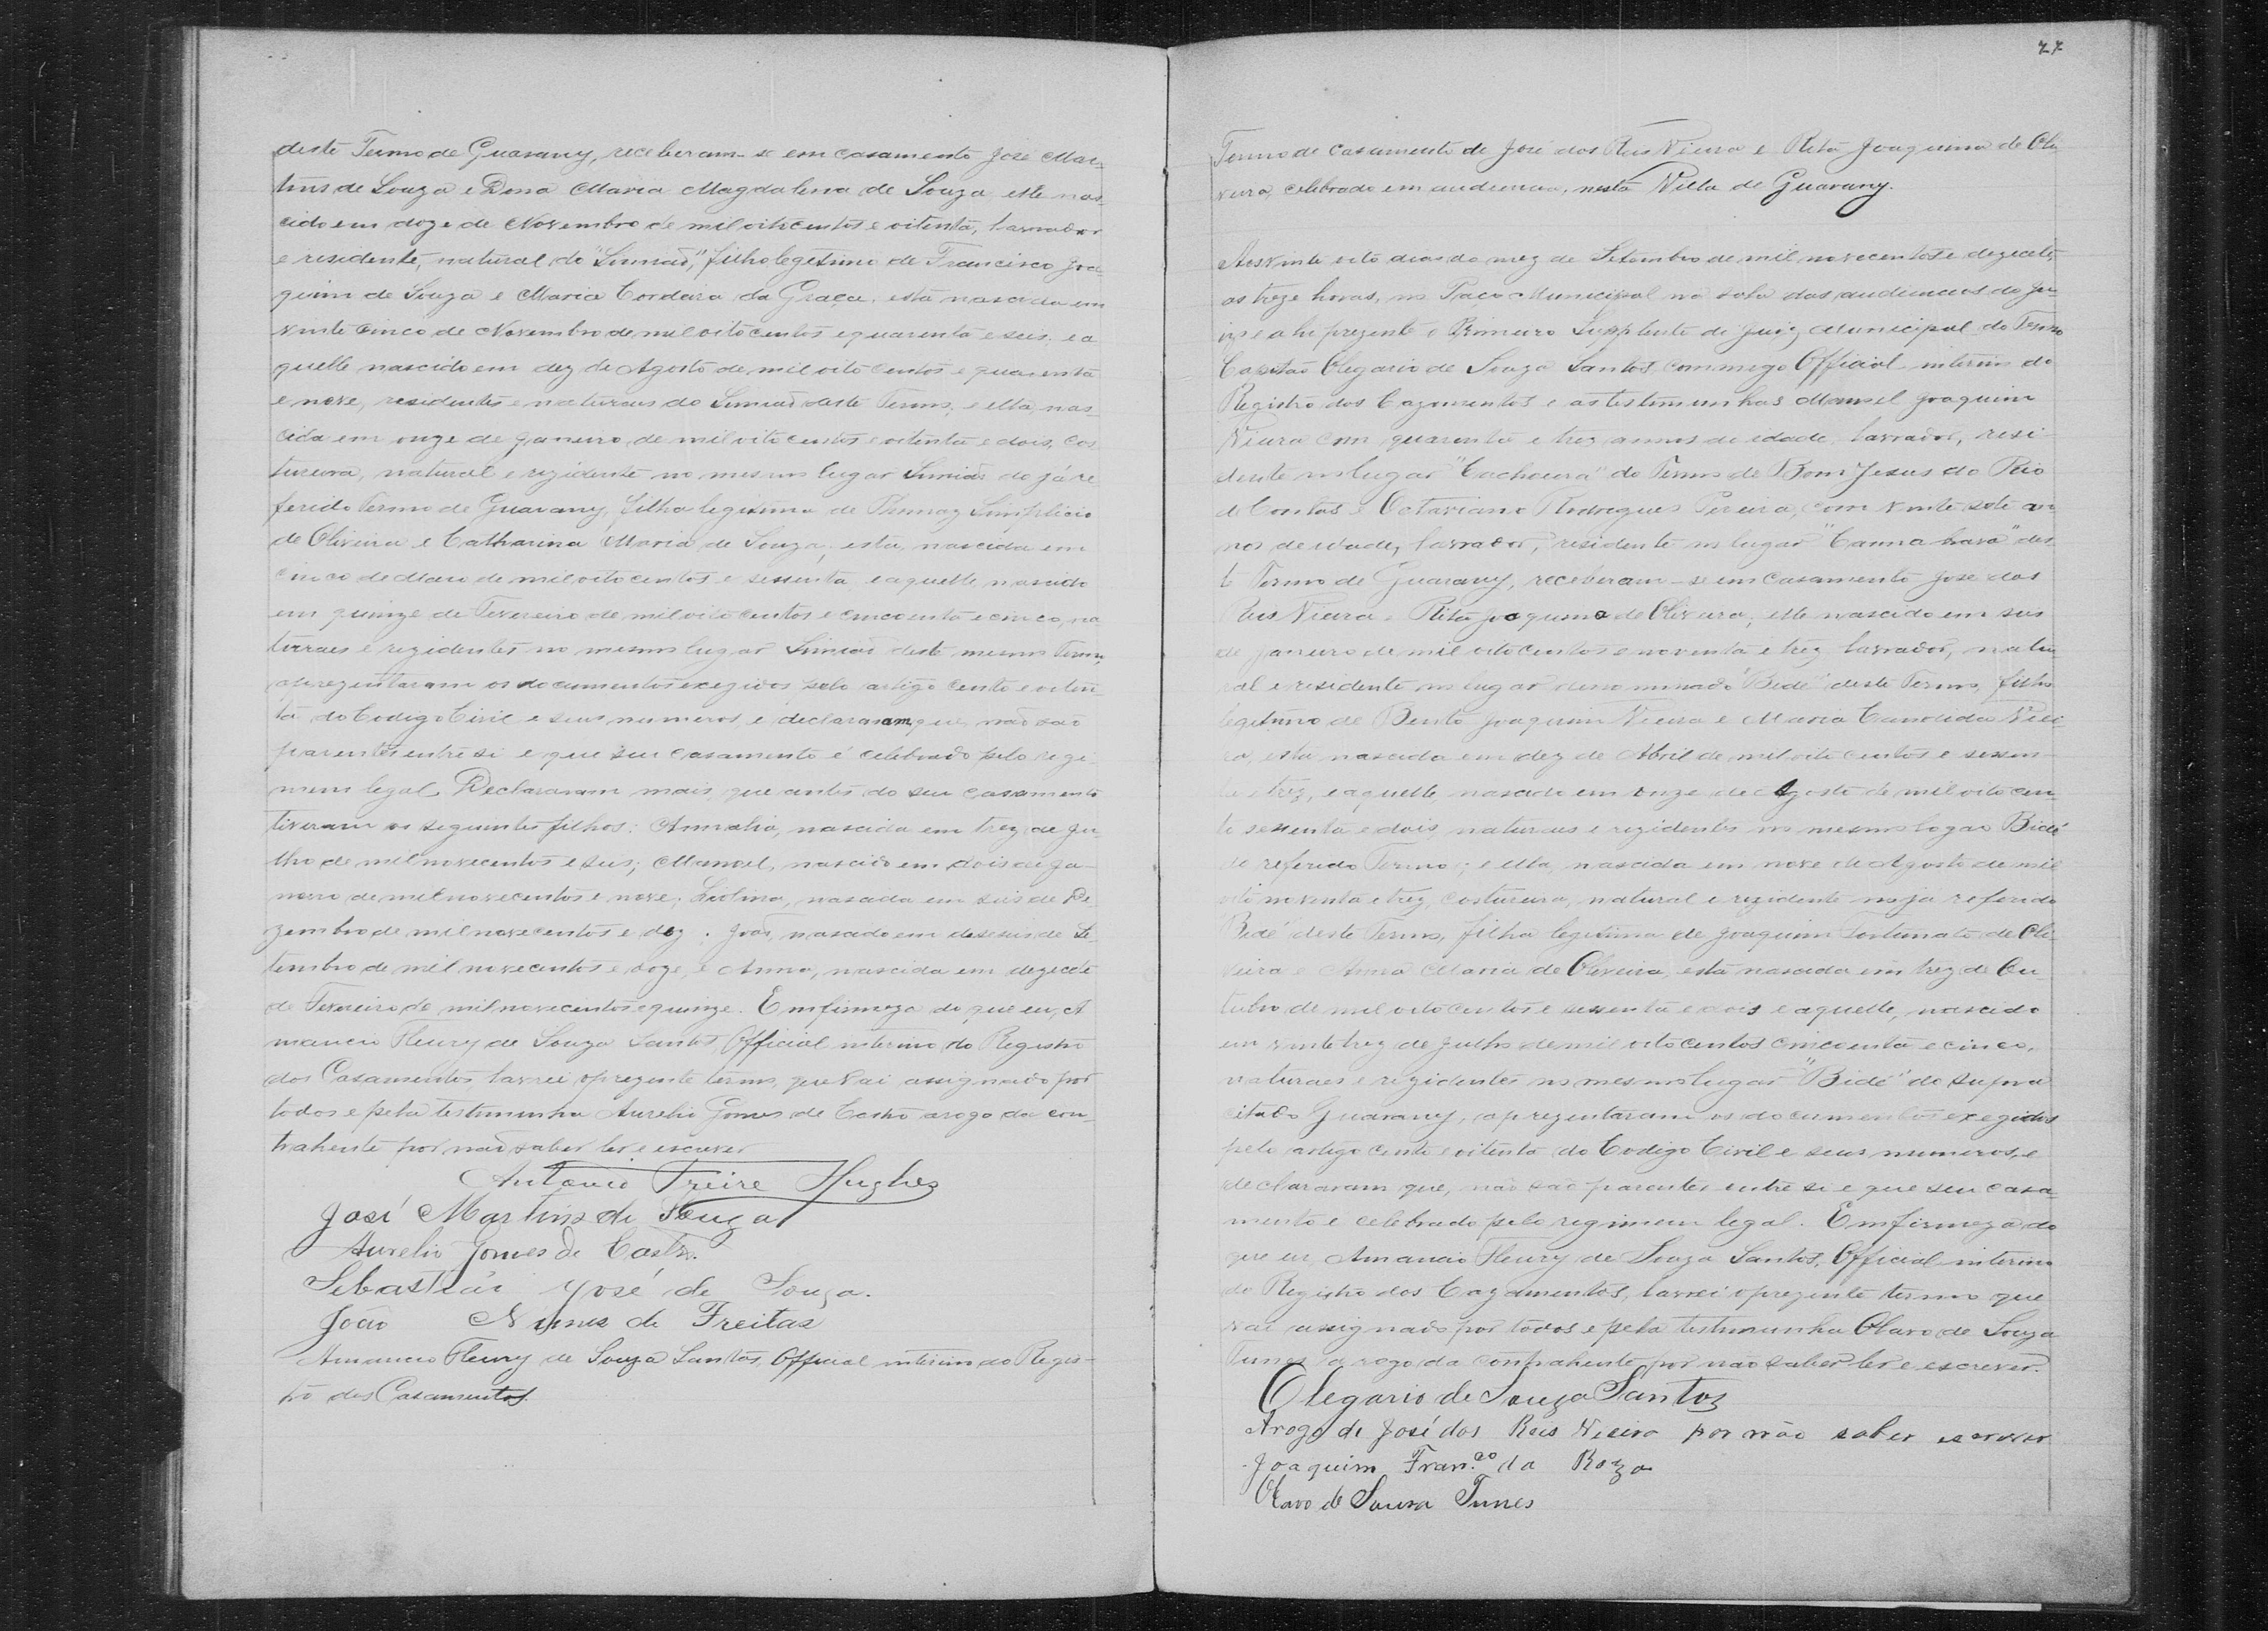 deste Termo de Guarany, receberam-se em casamento José Mar-
tins de Souza e Dona Maria Magdalena de Souza, elle nas-
cido em doze de Novembro de mil oitocentos e oitenta, lavrador
e residente, natural do "Simião," filho legitimo de Francisco Joa-
quim de Souza e Maria Cordeira da Graça, esta nascida em
vinte cinco de Novembro de mil oitocentos e quarenta e seis, e a
quelle nascido em dez de Agosto de mil oito centos e quarenta
e nove, residentes e naturaes do Simião deste Termo, e ella, nas-
cida em onze de Janeiro de mil oito centos e oitenta e dois, cos-
tureira, natural e rezidente no mesmo lugar Simião do já re
ferido Termo de Guarany, filha legitima de Thomaz Simplicio
de Oliveira e Catharina Maria de Souza, esta, nascida em
cinco de Maio de mil oito centos e sessenta, e aquelle nascido
em quinze de Fevereiro de mil oito centos e cincoenta e cinco, na
turaes e rezidentes no mesmo lugar Simião deste mesmo Termo,
aprezentaram os documentos exegidos pelo artigo cento e oiten-
ta do Codigo Civil e seus numeros, e declararam, que, não são
parentes entre si e que seu casamento é celebrado pelo regi-
mem legal. Declararam mais, que antes do seu casamento
tiveram os seguintes filhos: Annalia, nascida em trez de Ju-
lho de mil novecentos e seis; Manoel, nascido em dois de Ja-
neiro de mil novecentos e nove; nascida em seis de De
zembro de mil novecentos e dez; João, nascido em deseseis de Se-
tembro de mil novecentos e doze, e Anna, nascida em dezecete
de Fevereiro de mil novecentos e quinze. Em firmeza do que eu, A
mancio Fleury de Souza Santos, Official interino do Registro
dos Casamentos, lavrei o prezente termo, que vai assignado por
todos e pela testimunha Aurelio Gomes de Castro arogo da con-
trahente por não saber ler e escrever
Antonio Freire Hughes
José Martins de Souza
Aurelio Gomes de Castro.
Sebastião José de Souza.
João Nunes de Freitas
Amancio Fleury de Souza Santos, Official interino do Regis-
tro dos Casamentos.
77
Termo de casamento de José dos Reis Vieira e Rita Joaquina de Oli
veira, celebrado em audiencia, nesta Villa de Guarany.
Aos vinte oito dias do mez de Setembro de mil novecentos e dezecete,
as treze horas, no Paço Municipal na sala das audiencias do ju-
izo e ahi prezente o Primeiro Supplente de Juiz Municipal do Termo
Capitão Olegario de Souza Santos, commigo Official interino do
Registro dos Cazamentos e as testimunhas Manoel Joaquim
Vieira com quarenta e trez annos de edade, lavrador, resi-
dente no lugar "Cachoeira" do Termo de Bom Jesus do Rio
de Contas e Octaviano Rodrigues Pereira, com vinte sete an
nos de idade, lavrador, residente no lugar "Canna brava" des
te Termo de Guarany, receberam-se em casamento José dos
Reis Vieira e Rita Joaquina de Oliveira, elle nascido em seis
de Janeiro de mil oito centos e noventa e trez, lavrador, natu-
ral e residente no lugar denominado "Bidé" deste Termo, filho
legitimo de Bento Joaquim Vieira e Maria Candida Viei-
ra, esta nascida em dez de Abril de mil oito centos e sessen-
ta e trez, e aquelle, nascido em onze de Agosto de mil oito cen-
to sessenta e dois, naturaes e rezidentes no mesmo logar Bidé
do referido Termo; e ella, nascida em nove de Agosto de mil
oito noventa e trez, costureira, natural e rezidente no já referido
"Bidé" deste Termo, filha legitima de Joaquim Fortunato de Oli
veira e Anna Maria de Oliveira, esta nascida em trez de Ou-
tubro de mil oito centos e sessenta e dois e aquelle, nascido
em vinte trez de Julho de mil oito centos cincoenta e cinco,
naturaes e rezidentes no mesmo lugar "Bidé" do supra
citado Guarany, aprezentaram os documentos exegidos
pelo artigo cento e oitenta do Codigo Civil e seus numeros, e
declararam que, não são parentes entre si e que seu casa-
mento é celebrado pelo regimem legal. Em firmeza do
que eu, Amancio Fleury de Souza Santos, Official interino
do Registro dos Cazamentos, lavrei o prezente termo que
vai assignado por todos e pela testimunha Olavo de Souza
Tunes, a rogo da contrahente por não saber ler e escrever.
Olegario de Souza Santos
Arogo de José dos Reis Vieira por não saber escrever
Joaquim Fran.co da Roza
Olavo de Souza Tunes